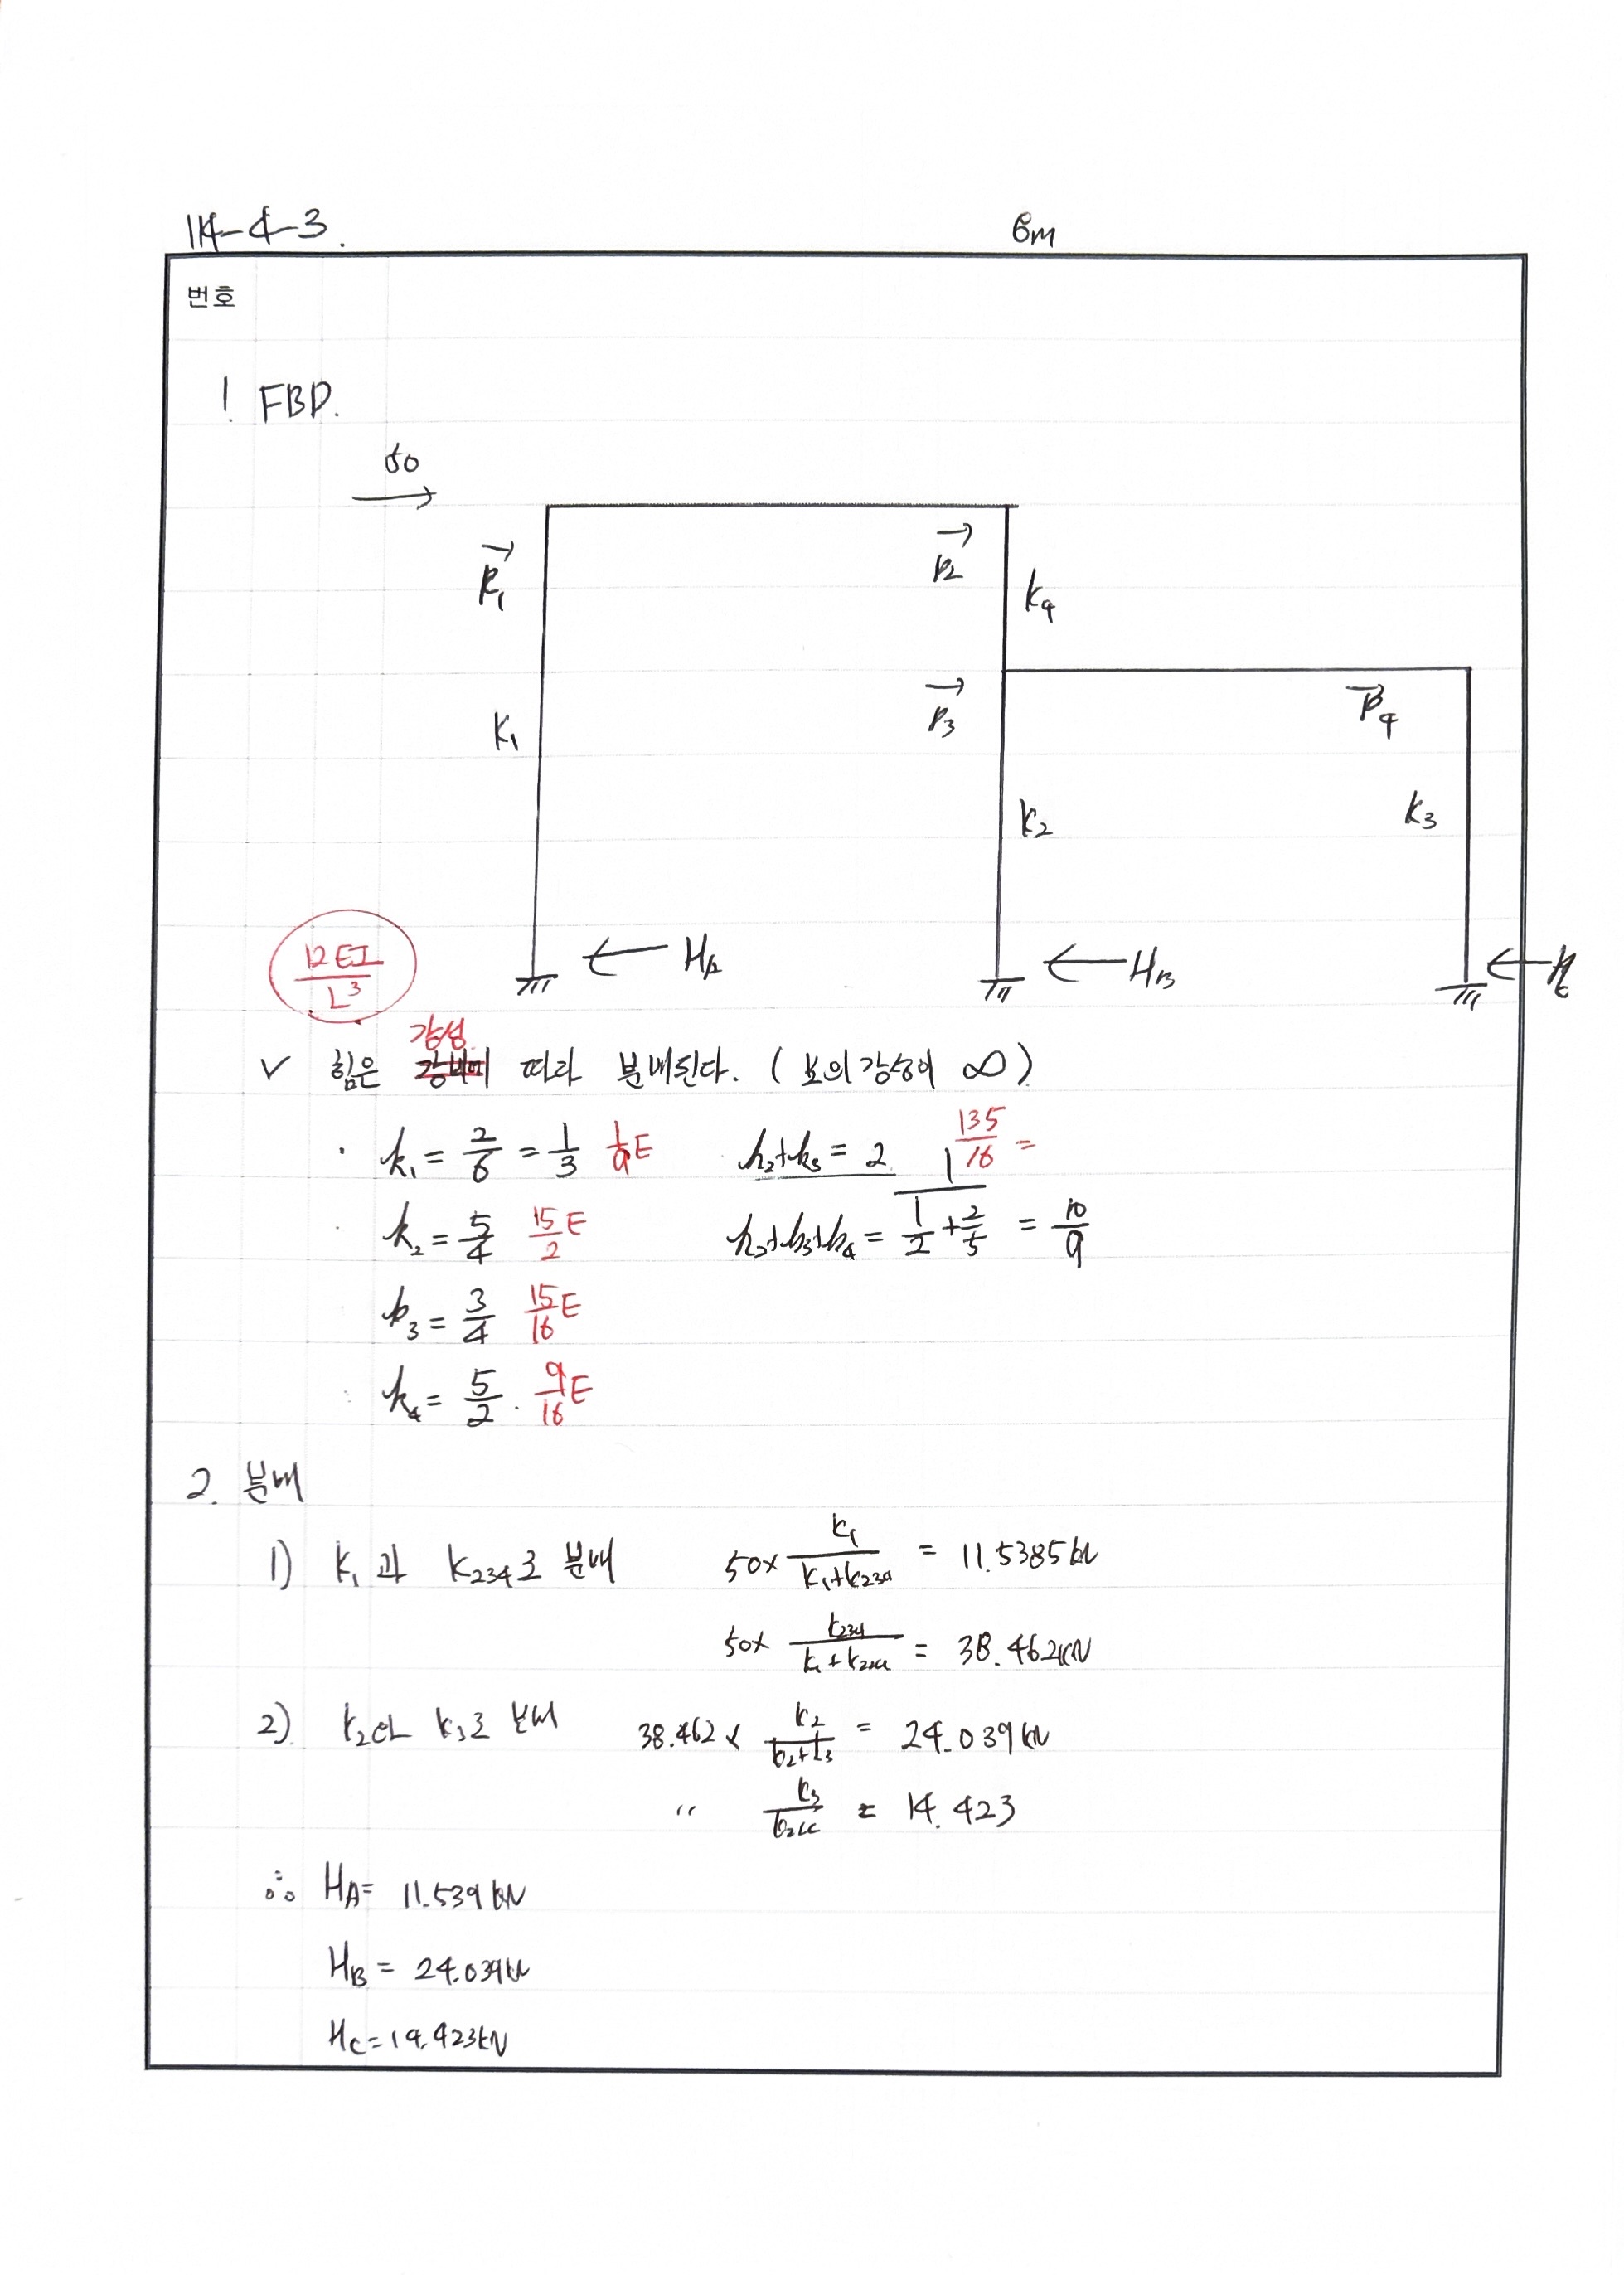 114-4-3.
6m
번호
1 FBD.
50
P1
P2
k4
P3
P4
K1
k2
k3
HA
HB
Hc
12EI/L³
강성
✓ 힘은 강비에 따라 분배된다. (보의 강성이 ∞)
· k1 = 2/6 = 1/3 1/9E k2+k3 = 2 135/16 =
· k2 = 5/4 15/2E k2+k3+k4 = 1/(1/2 + 2/5) = 10/9
· k3 = 3/4 15/16E
· k4 = 5/2 · 9/16E
2. 분배
1) K1과 K234로 분배 50× k1/(k1+k234) = 11.5385kN
50× k234/(k1+k234) = 38.462kN
2) k2와 k3로 분배 38.462× k2/(k2+k3) = 24.039kN
〃 k3/ = 14.423
∴ HA= 11.539kN
HB = 24.039kN
HC=14.423kN